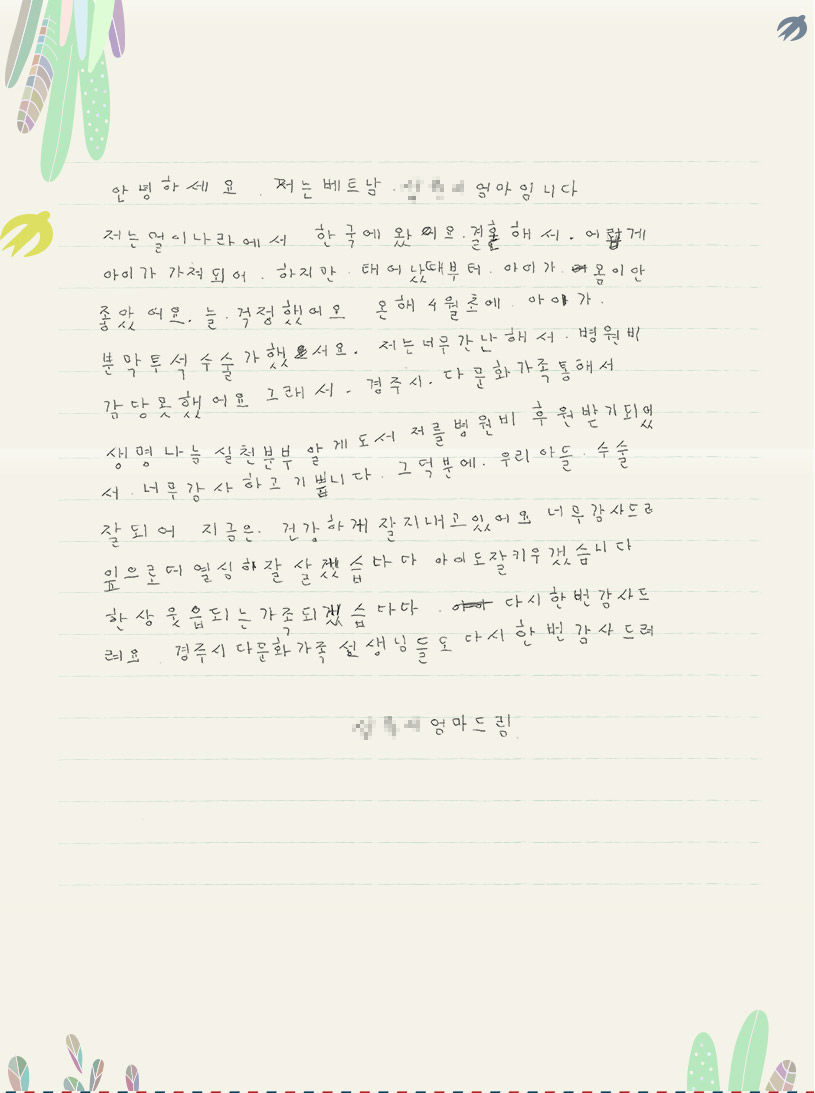 안녕하세요. 저는베트남. 엄마임니다
저는멀이나라에서 한국에 왔어요.결혼해서. 어렵게
아이가 가져되어. 하지만. 태어났때부터. 아이가. 몸이안
좋았어요. 늘. 걱정했어요 온해 4월초에. 아이가.
분막투석수술가했요서요. 저는너무간난해서. 병원비
감당못했어요 그래서. 경주시. 다문화가족통해서
생명나눔 실천분부 알게도서 저를병원비 후원받기되었
서. 너무감사하고 기쁩니다. 그덕분에. 우리아들. 수술
잘되어 지금은. 건강하게 잘지내고있어요 너무감사드려
앞으로더열심히잘 살겠습다다 아이도잘키우갰습니다
한상웃음되는가족되갰습다다. 다시한번감사드
려요. 경주시다문화가족 선생님들도 다시 한 번 감사 드려
엄마드림.